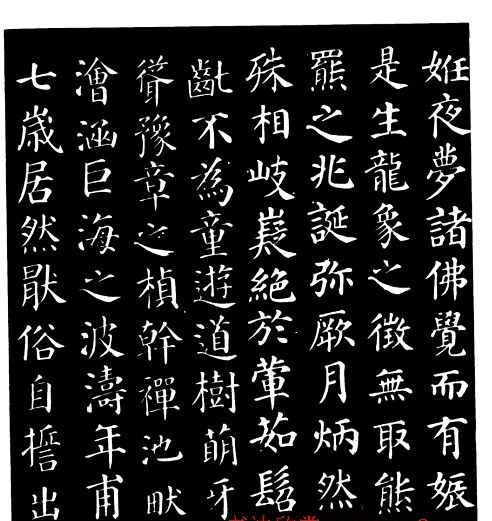 姙夜夢諸佛覺而有娠
是生龍象之徵無取熊
羆之兆誕弥厥月炳然
殊相岐嶷絕於葷茹髫
齔不為童遊道樹萌牙
聳豫章之楨幹禪池畎
澮涵巨海之波濤年甫
七歲居然猒俗自誓出